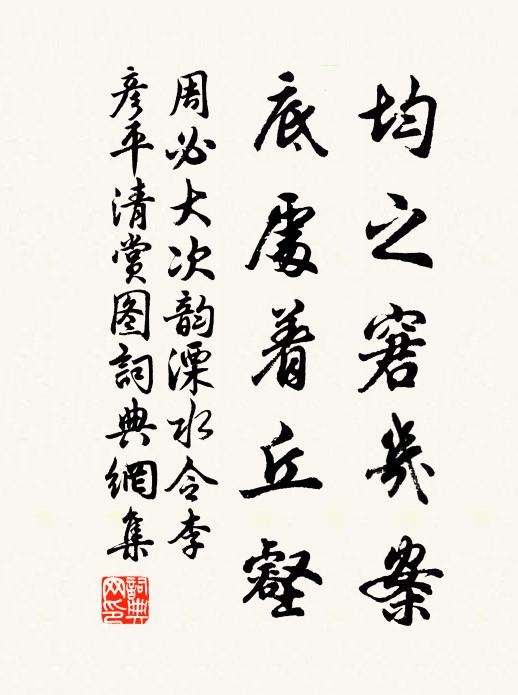 均之窘幾案
底處着丘壑
周必大次韵溧水令李
彦平清賞图詞典網集
詞典網印